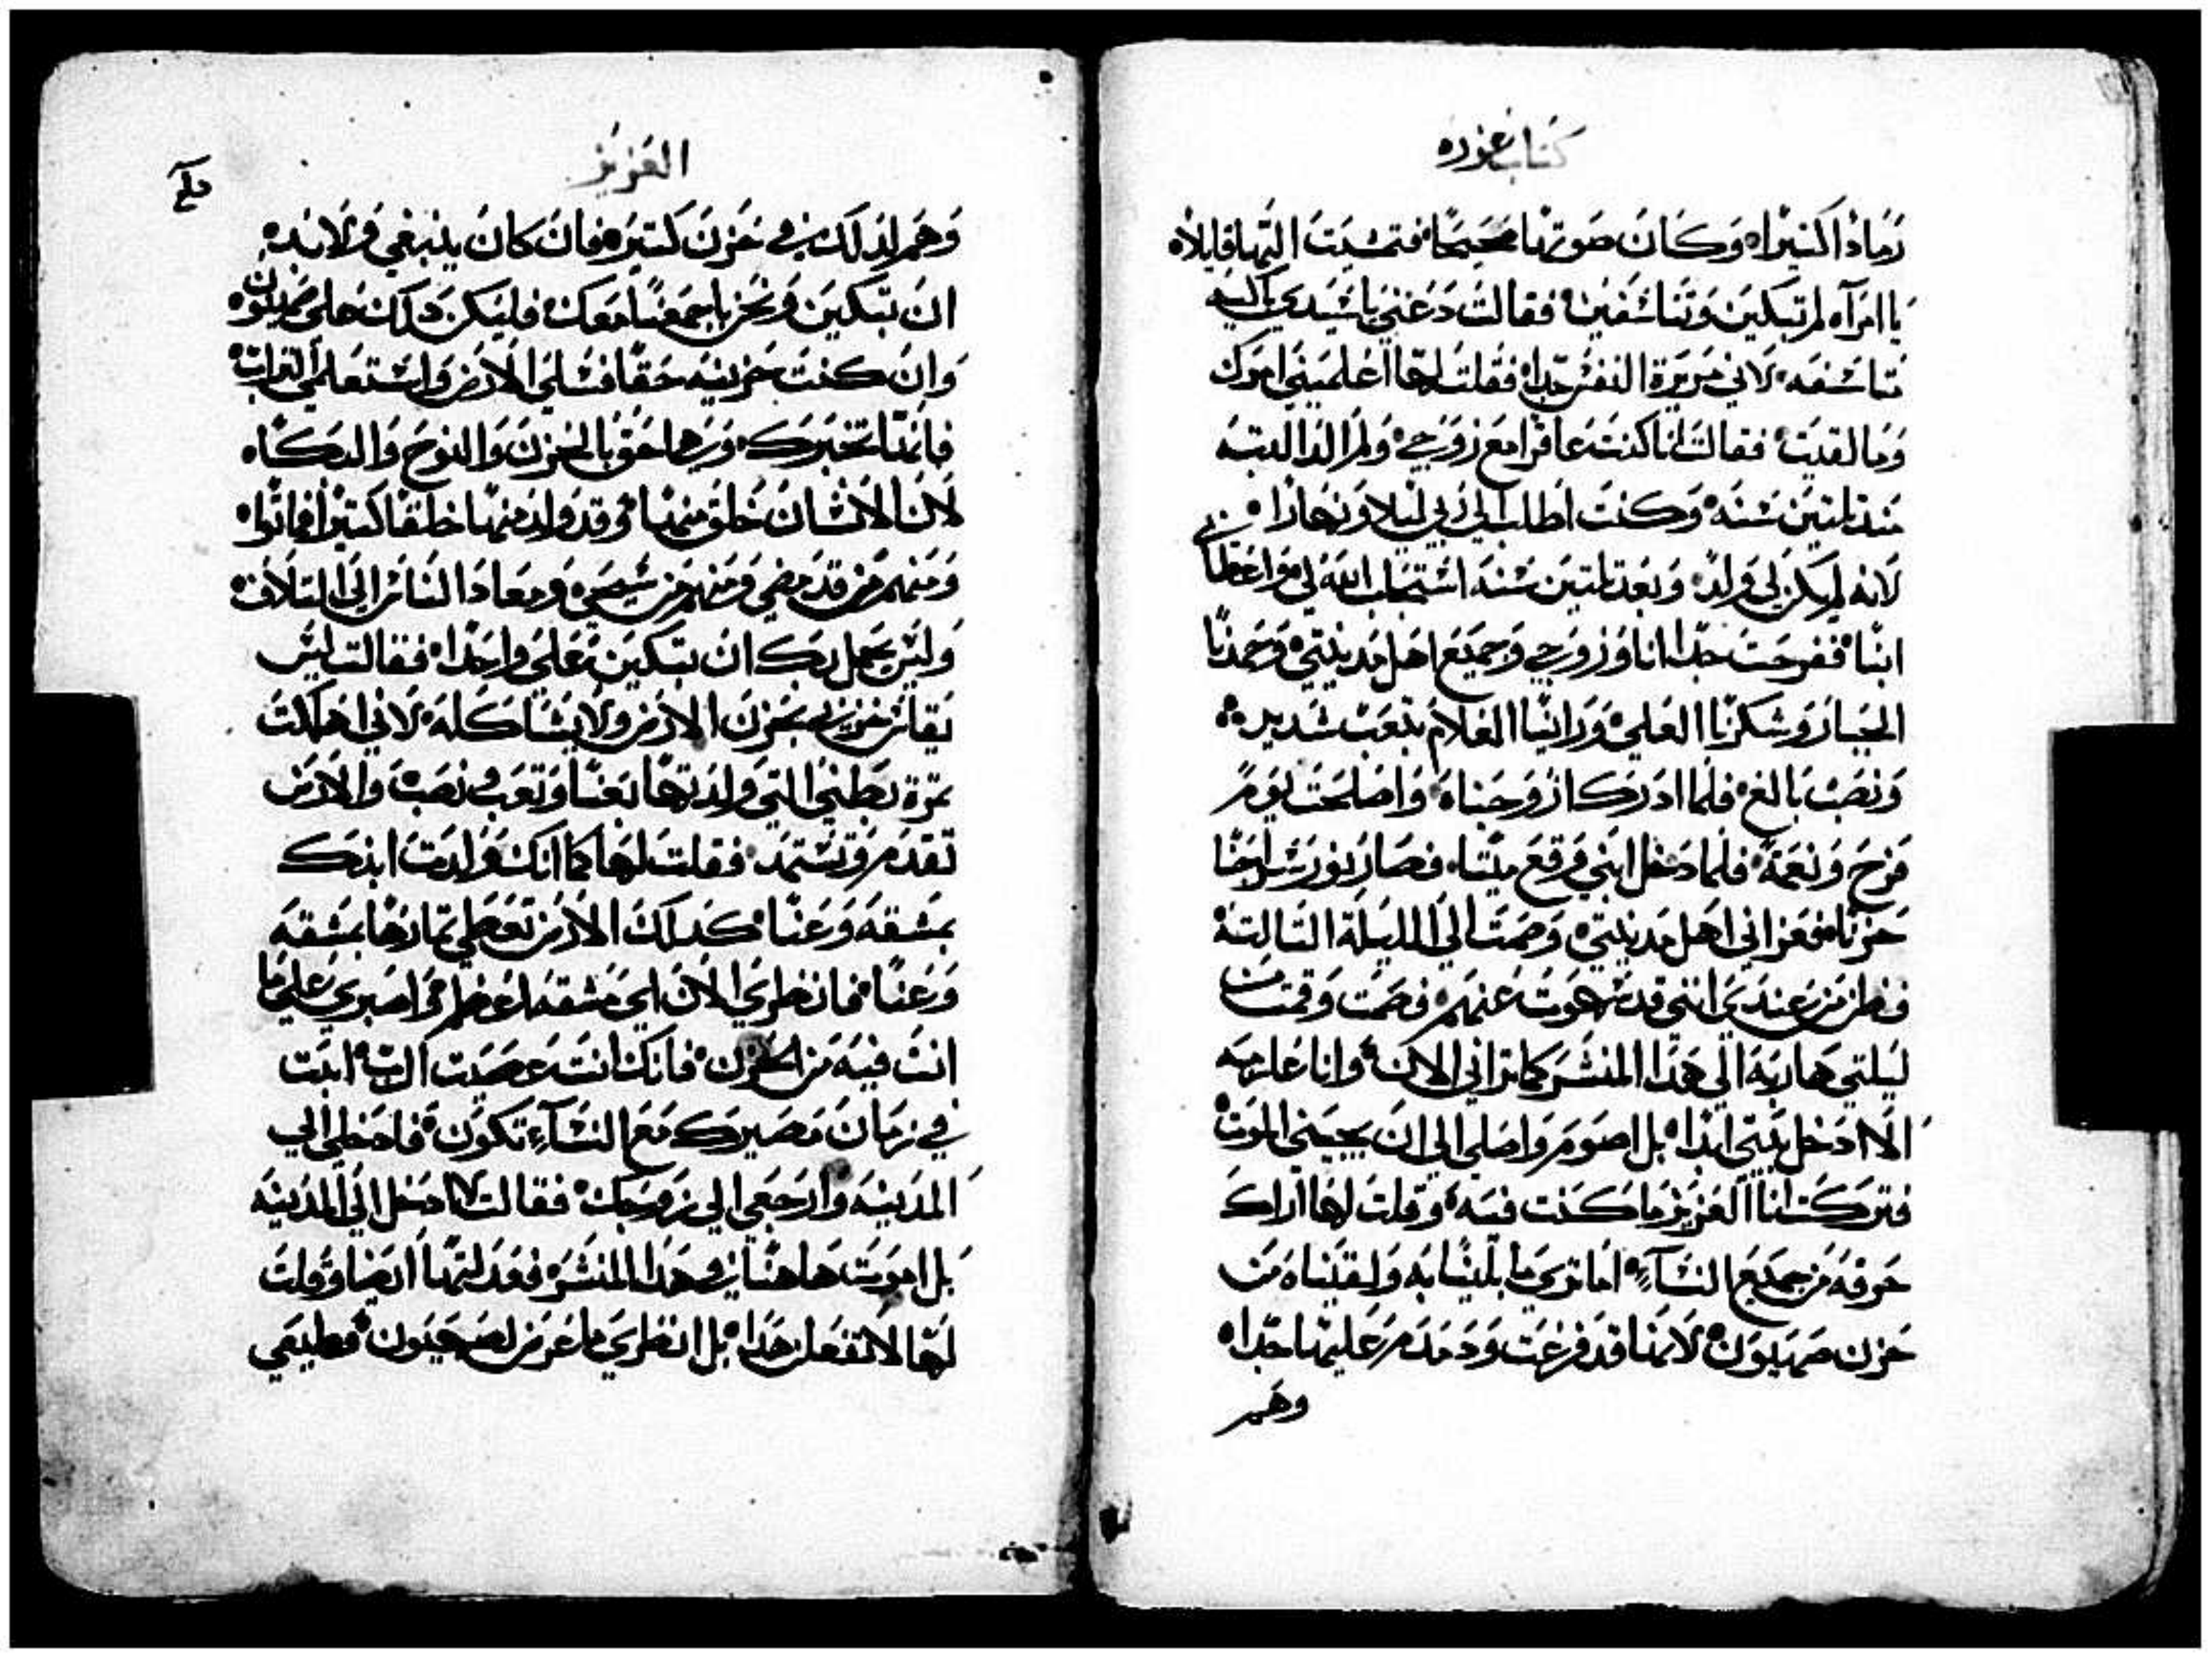 كتاب عزره
رماد اكثيرا وكان صوتها محيحا فتمشيت اليها قايلا
يا امراه لم تبكين وتتاسفين فقالت دعني يا سيدي ابكي
تتاسفه لاني مريرة النفس جدا فقلت لها اعلميني امرك
وما لقيت فقالت انا كنت عاقرا مع زوجي ولم الد البته
منذ تلتين سنه وكنت اطلب الي ربي ليلا ونهارا
لانه لم يكن لي ولد وبعد تلتين سنه استجاب الله لي واعطاني
ابنا ففرحت جدا انا وزوجي وجميع اهل مدينتي وحمدنا
الجبار وشكرنا العلي وربينا الغلام بتعب شديد
ونصب بالغ فلما ادرك ازوجناه واصلحت يوم
فرح ونعمة فلما دخل ابني وقع ميتا فصار نور سراجنا
حزنا فعزاني اهل مدينتي وصمت الي الليلة التالتة
فظن من عندي انني قد سهوت عنهم فصمت وقمت من
ليلتي هاربة الي هذا المنشر كما تراني الان وانا عازمه
الا ادخل بيتي ابدا بل اصوم واصلي الي ان يجيني الموت
فتركت انا العزيز ما كنت فيه وقلت لها اراك
خرفه من جميع النسآء اما تري ما بلينا به ولقيناه من
حزن صهيون لانها قد فرغت ودمدم عليها جدا
وهم
العزيز
وهم لذلك في حزن كتير فان كان ينبغي ولا بد
ان تبكين ونحن باجمعنا معك فليكن ذلك علي صهيون
وان كنت حزينه حقا فسلي الارض واستعلمي التراب
فانها تخبرك وربما حق بالحزن والنوح والبكاه
لان الانسان خلق منها وقد ولد منها خلقا كتيرا فماتوا
ومنهم من قد مضي ومنهم من سيمضي ومعاد الناس الي التلاف
وليس يجمل بك ان تبكين علي واحدا فقالت ليس
يقاس حزني بحزن الارض ولا يشاكله لاني اهلكت
تمرة بطني التي ولدتها بعنا وتعب ونصب والارض
تقدم وتستمد فقلت لها كما انك ولدت ابنك
بمشقه وعنا كذلك الارض تعطي تمارها بمشقه
وعنا فانظري الان اي مشقه اعظم واصبري علي ما
انت فيه من الحزن فانك انت عوضت الرب ابنت
في زمان مصيرك مع النسآء تكون فادخلي الي
المدينه وارجعي الي زوجك فقالت لا ادخل الي المدينه
بل اموت هاهنا في هذا المنشر فعدلتها ايضا وقلت
لها لا تفعلن هذا بل انظري ما عرض لصهيون وطيبي